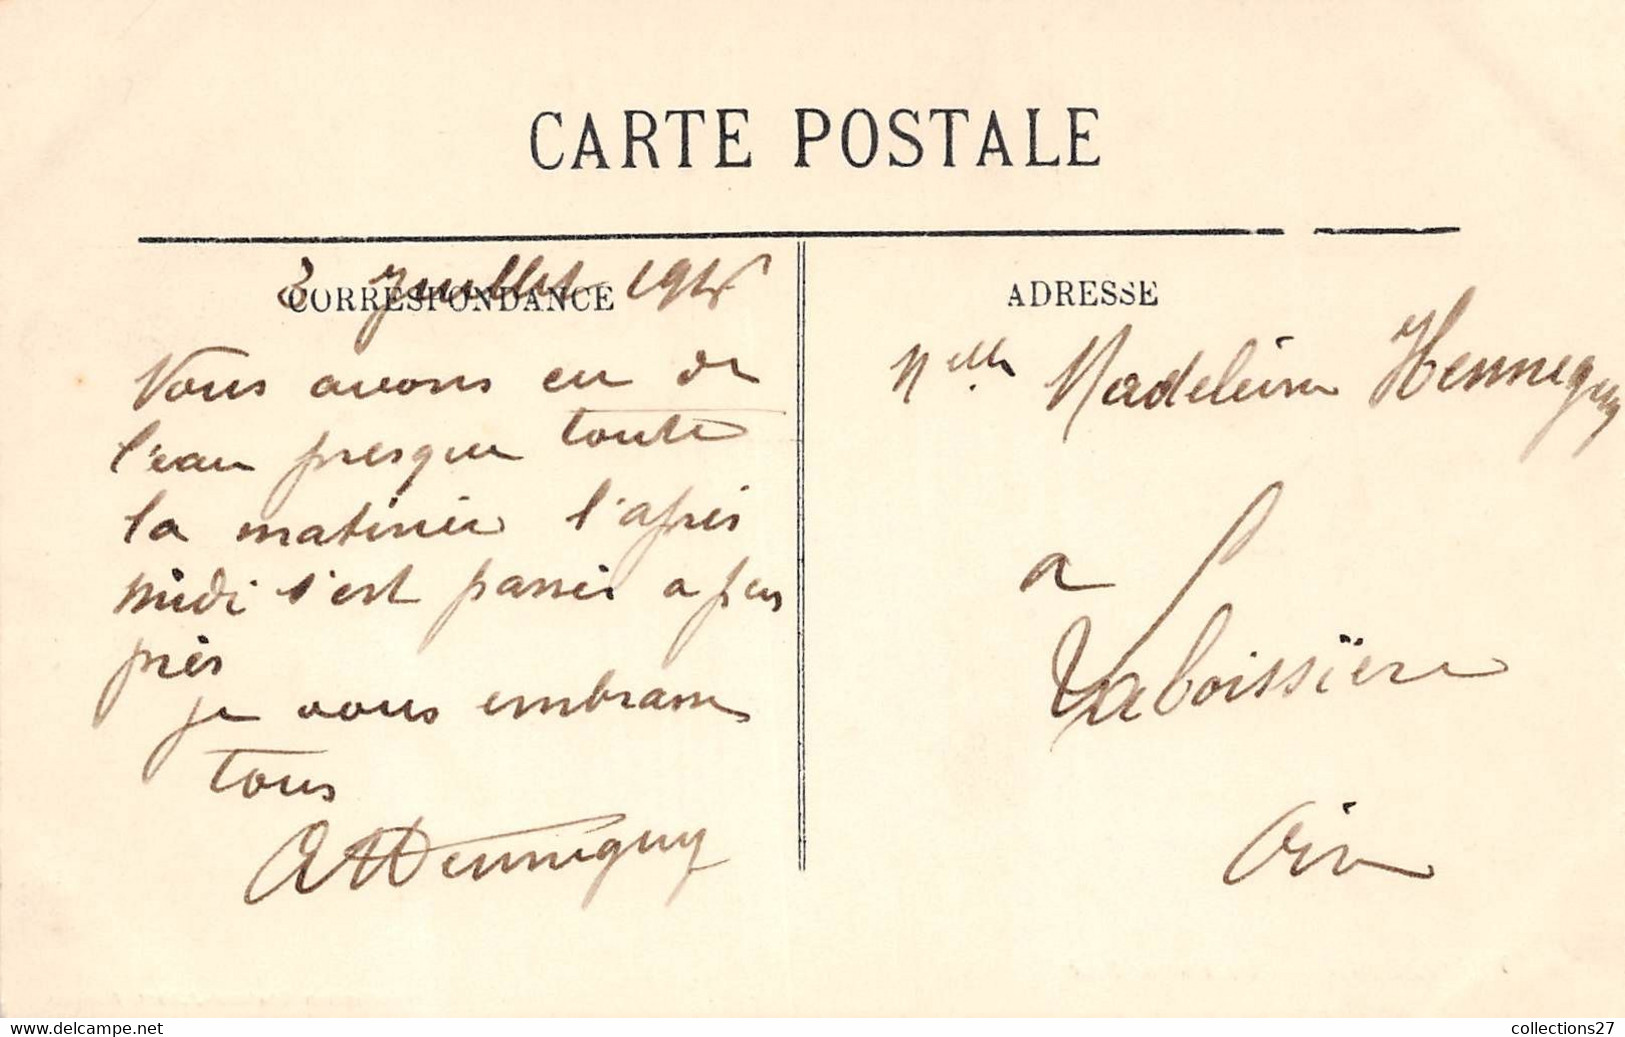 CARTE POSTALE
CORRESPONDANCE
Juillet 191
Nous avons eu de
l'eau presque toute
la matinée l'après
midi s'est passée a peu
près
je vous embrasse
tous
A Henneguy
ADRESSE
Melle Madeleine Henneguy
a
Laboissière
Oise
www.delcampe.net
collections27